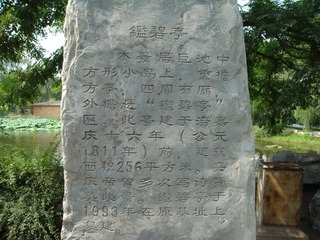 鑑碧亭
本景居巨池中
方形小岛上,重檐
方亭,四周有廊,
外檐悬“鑑碧亭”
匾。此景建于清嘉
庆十六年(公元
1811年)前,建筑
面积256平方米。嘉
庆帝曾多次写诗
1993年在原基址上
复建。